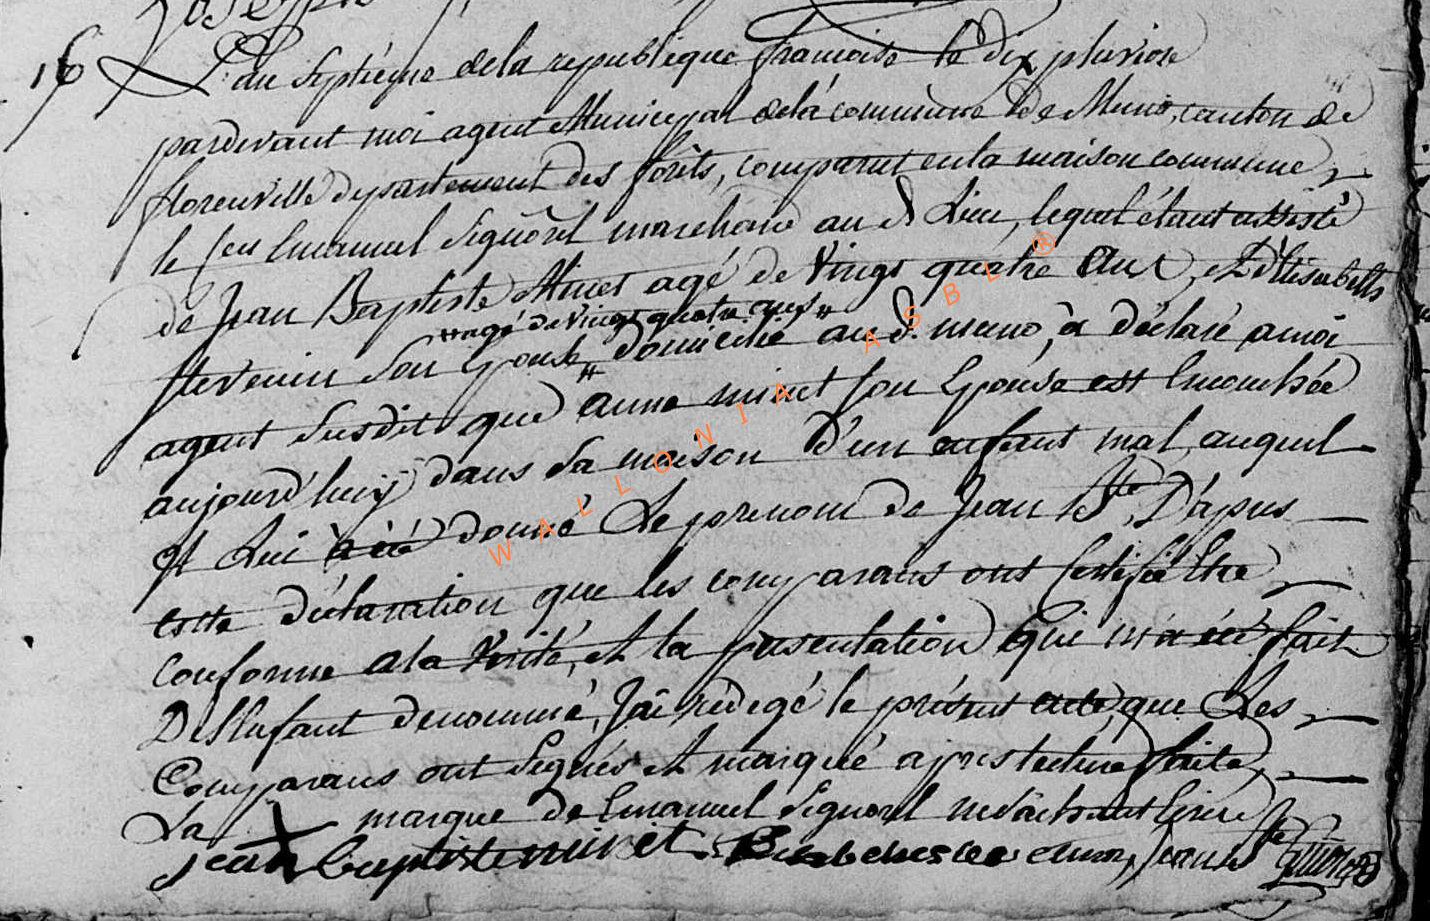 16
L'an septiéme de la republique francoise le dix pluviose
pardevant moi agent Municipal de la commune de Muno, canton de
florenville departement des forêts, comparut en la maison commune,
le Cen Emanuel Signorel marchand au d Lieu, lequel étant assisté
de Jean Baptiste Minet agé de vingt quatre ans, et d'Elisabeth
agé de vingt quatre ans
Stevenin son Epouse domicilié au d. muno, à déclaré a moi
agent susdit que anne minet son Epouse est Encouchée
aujourd'huy dans sa maison d'un enfant mal, auquel
et Lui a été donné Le prenom de Jean Bte, D'apres
cette déclaration que les comparans ont Certifié Etre
conforme a la Verité, et la presentation Qui m'a été fait
De l'Enfant denommé, J'ai rédegé le présent acte, que Les
Comparans ont Signés et marqué apres lecture faite,
La marque de Emanuel Signorel
jean baptiste minet
WALLONIA ASBL ®